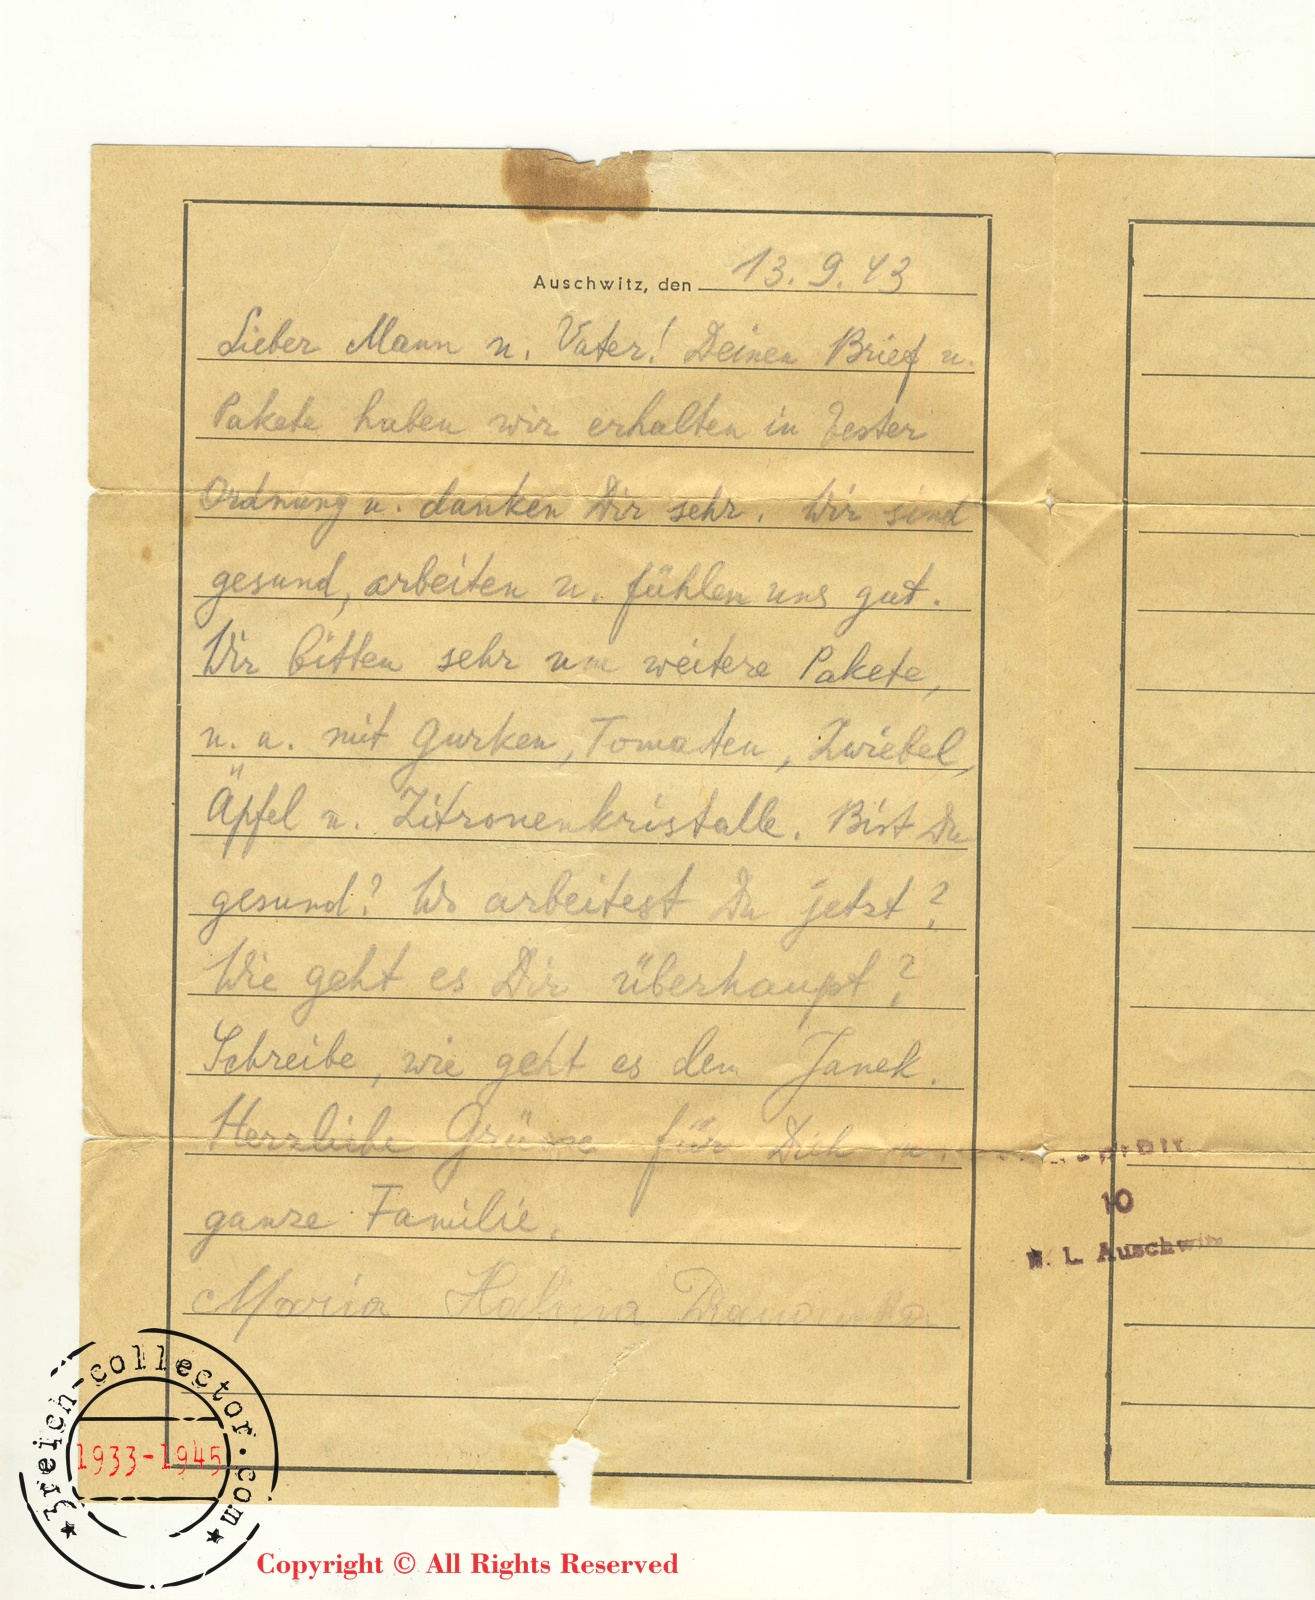 Auschwitz, den 13.9.43
Lieber Mann u. Vater! Deinen Brief u.
Pakete haben wir erhalten in bester
Ordnung u. danken Dir sehr. Wir sind
gesund, arbeiten u. fühlen uns gut.
Wir bitten sehr um weitere Pakete,
u. a. mit Gurken, Tomaten, Zwiebel,
Äpfel u. Zitronenkristalle. Bist Du
gesund? Wo arbeitest Du jetzt?
Wie geht es Dir überhaupt?
Schreibe, wie geht es dem Janek.
Herzliche Grüsse für Dich u.
ganze Familie.
Maria Halina
10
K. L. Auschwitz
3reich-collector.com
1933-1945
Copyright © All Rights Reserved